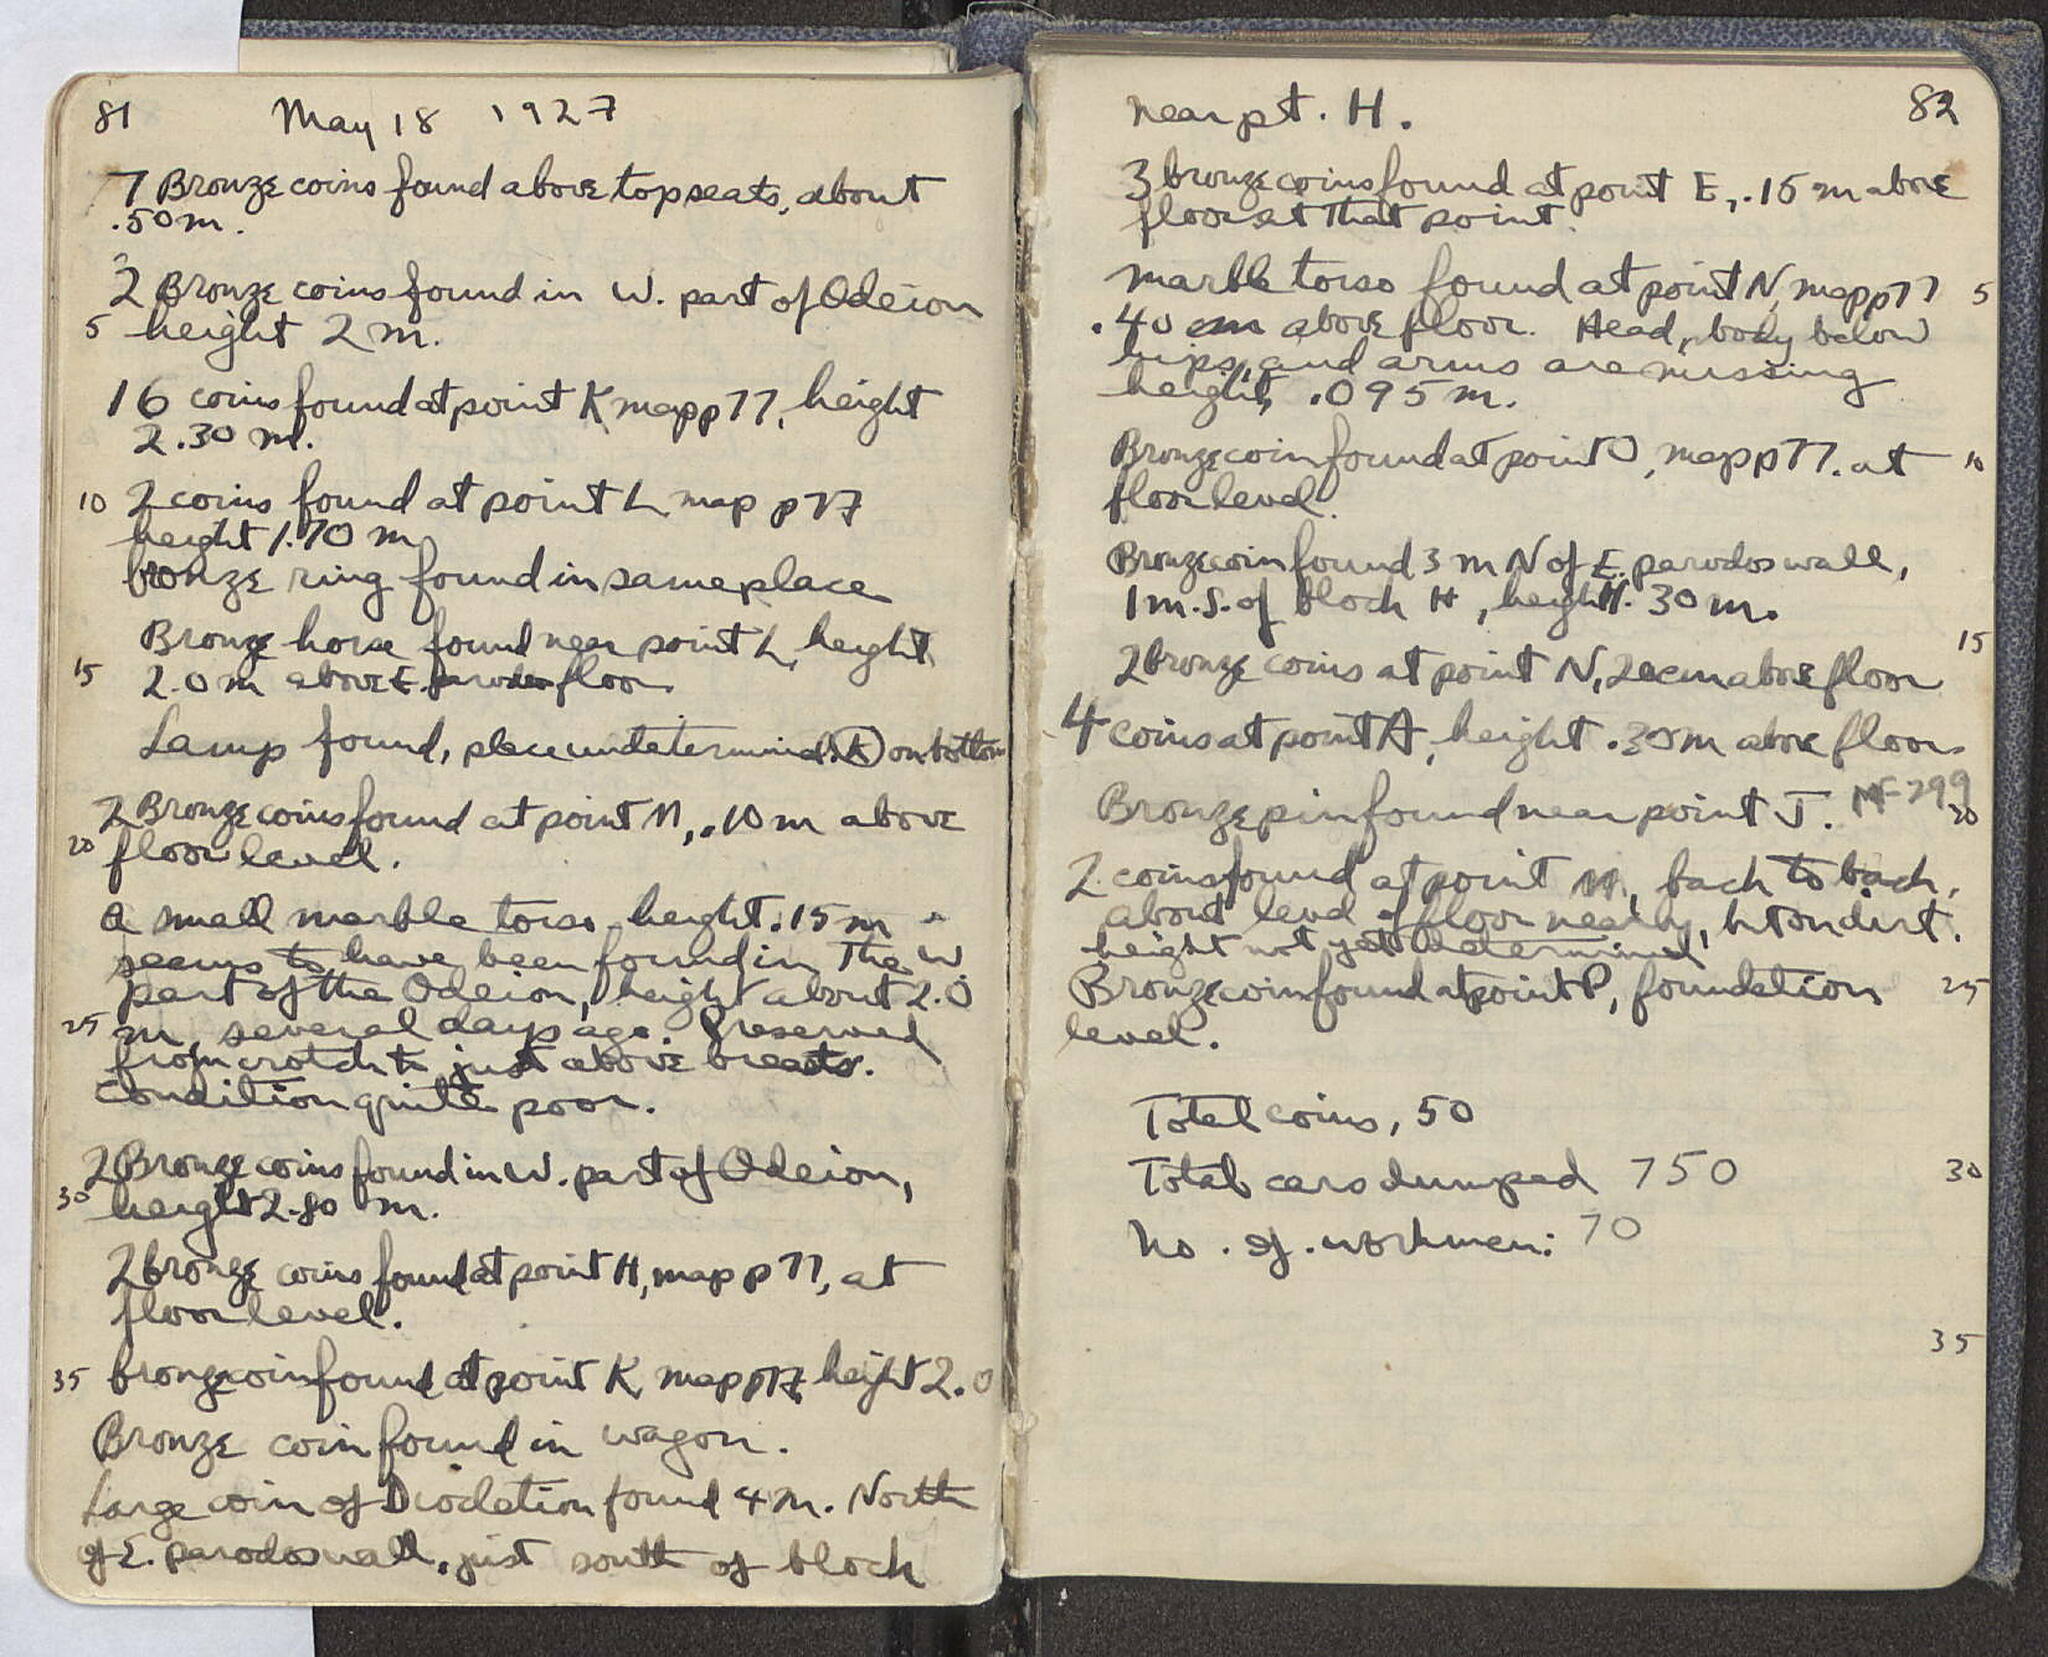 81 May 18 1927
7 Bronze coins found above top seats, about
.50 m.
2 Bronze coins found in W. part of Odeion
5 height 2 m.
16 coins found at point K map p 77, height
2.30 m.
10 2 coins found at point L map p 77
height 1.70 m
bronze ring found in same place
Bronze horse found near point L, height
15 2.0 m above E. parodos floor
Lamp found, place undetermined. (A) on bottom
2 Bronze coins found at point M, .10 m above
20 floor level.
A small marble torso, height .15 m
seems to have been found in the W
part of the Odeion, height about 2.0
25 m, several days ago. Preserved
from crotch to just above breasts.
Condition quite poor.
2 Bronze coins found in W. part of Odeion,
30 height 2.80 m.
2 bronze coins found at point H, map p 77, at
floor level.
35 bronze coin found at point K, map p 77, height 2.0
Bronze coin found in wagon.
Large coin of Diocletion found 4 m. North
of E. parodos wall, just south of block
82
near pt. H.
3 bronze coins found at point E, .15 m above
floor at that point.
marble torso found at point N, map p 77 5
.40 m above floor. Head, body below
hips, and arms are missing
height, .095 m.
Bronze coin found at point O, map p 77. at 10
floor level.
Bronze coin found 3 m N of E. parodos wall,
1 m. S. of block H, height .30 m.
15
2 bronze coins at point N, 20 cm above floor
4 coins at point A, height .30 m above floor.
Bronze pin found near point J. MF-299
20
2 coins found at point M, back to back,
about level of floor nearby, but on dirt.
height not yet determined
Bronze coin found at point P, foundation 25
level.
Total coins, 50
Total cars dumped 750 30
No. of. workmen: 70
35